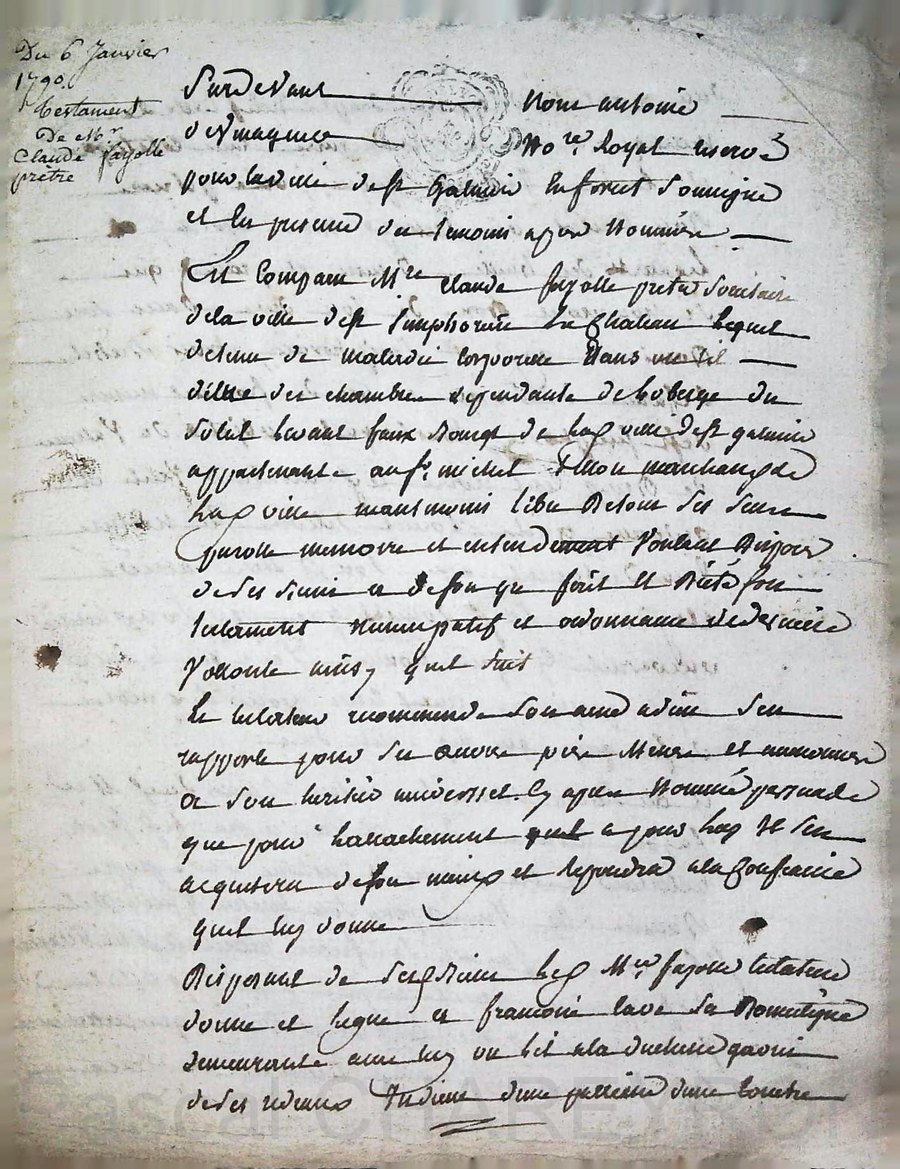 Du 6 Janvier
1790.
Testament
De Mr
Claude fayolle
prêtre
Pardevant Nous antoine
Nore. Royal reservé
pour la ville de st Galmier En forest soussigné
et En presence des temoins apres Nommés
Est Comparu Mre Claude fayolle pretre societaire
de la ville de st simphorien Le Chateau Lequel
detenu de maladie Corporelle Dans un lit
des chambres dependante de Loberge du
soleil Levant faux bourgt de Lad ville de st galmier
appartenante au sr. michel marchand de
Lad ville neantmoins libre De tous ses sens
parolle memoire et entendement Voulant Disposer
de ses biens a De son gré fait Et Dicté son
testament nuncupatif et ordonnance de derniere
Volonté ainsy quil suit
Le testateur recommende son ame a dieu sen
rapporte pour ses œuvres pies Messes et aumones
a son heritier universsel Cy apres Nommé persuadé
que pour Lattachement quil a pour Luy Il sen
acquitera de son mieux et repondra a la Confiance
quil luy donne
Disposant de sesd biens led Mre. fayolle testateur
donne et legue a francoise sa Domestique
demeurante avec luy un lit a la duchesse garni
de ses rideaux Indienne dune paillasse dune Couètre